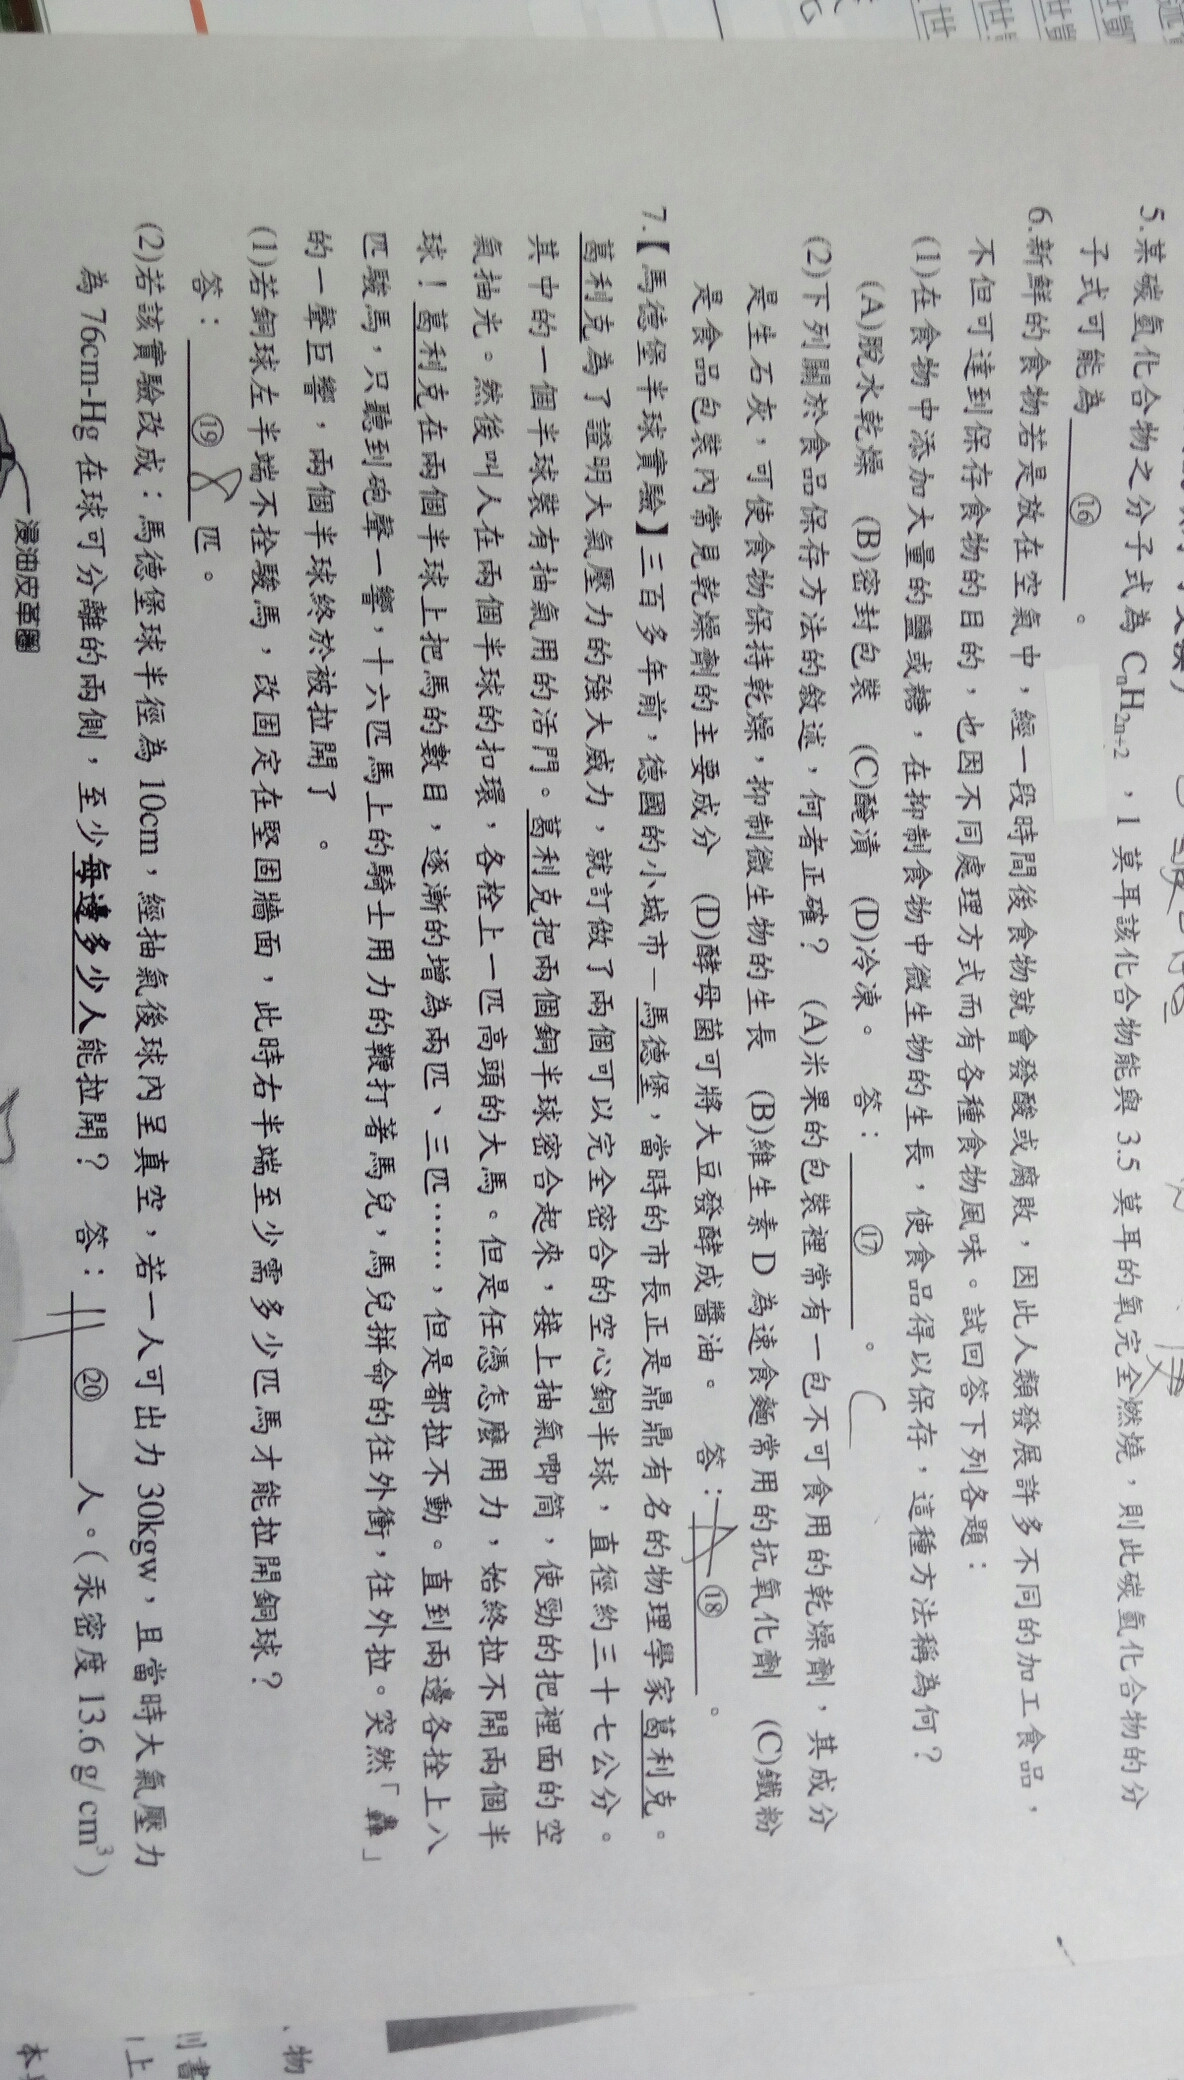 5.某碳氫化合物之分子式為 CnH2n+2 ，1 莫耳該化合物能與 3.5 莫耳的氧完全燃燒，則此碳氫化合物的分
子式可能為 ⑯ 。
6.新鮮的食物若是放在空氣中，經一段時間後食物就會發酸或腐敗，因此人類發展許多不同的加工食品，
不但可達到保存食物的目的，也因不同處理方式而有各種食物風味。試回答下列各題：
(1)在食物中添加大量的鹽或糖，在抑制食物中微生物的生長，使食品得以保存，這種方法稱為何？
(A)脫水乾燥 (B)密封包裝 (C)醃漬 (D)冷凍。 答： ⑰ 。 C
(2)下列關於食品保存方法的敘述，何者正確？ (A)米果的包裝裡常有一包不可食用的乾燥劑，其成分
是生石灰，可使食物保持乾燥，抑制微生物的生長 (B)維生素 D 為速食麵常用的抗氧化劑 (C)鐵粉
是食品包裝內常見乾燥劑的主要成分 (D)酵母菌可將大豆發酵成醬油。 答： A ⑱ 。
7.【馬德堡半球實驗】三百多年前，德國的小城市－馬德堡，當時的市長正是鼎鼎有名的物理學家葛利克。
葛利克為了證明大氣壓力的強大威力，就訂做了兩個可以完全密合的空心銅半球，直徑約三十七公分。
其中的一個半球裝有抽氣用的活門。葛利克把兩個銅半球密合起來，接上抽氣唧筒，使勁的把裡面的空
氣抽光。然後叫人在兩個半球的扣環，各栓上一匹高頭的大馬。但是任憑怎麼用力，始終拉不開兩個半
球！葛利克在兩個半球上把馬的數目，逐漸的增為兩匹、三匹……，但是都拉不動。直到兩邊各拴上八
匹駿馬，只聽到砲聲一響，十六匹馬上的騎士用力的鞭打著馬兒，馬兒拼命的往外衝，往外拉。突然「轟」
的一聲巨響，兩個半球終於被拉開了 。
(1)若銅球左半端不拴駿馬，改固定在堅固牆面，此時右半端至少需多少匹馬才能拉開銅球？
答： ⑲ 8 匹。
(2)若該實驗改成：馬德堡球半徑為 10cm，經抽氣後球內呈真空，若一人可出力 30kgw，且當時大氣壓力
為 76cm-Hg 在球可分離的兩側，至少每邊多少人能拉開？ 答： 11 ⑳ 人。(汞密度 13.6 g/cm³)
浸油皮革圈